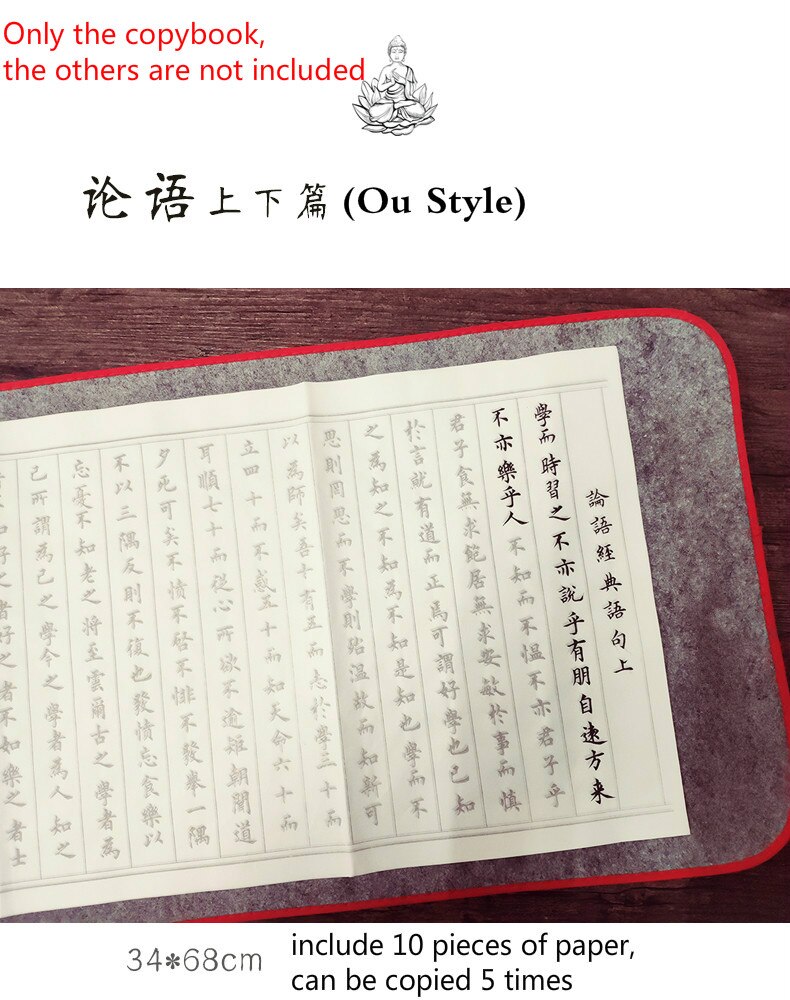 Only the copybook,
the others are not included
论语上下篇(Ou Style)
論語經典語句上
學而時習之不亦說乎有朋自遠方来
不亦樂乎人不知而不愠不亦君子乎
君子食無求飽居無求安敏於事而慎
於言就有道而正焉可謂好學也已知
之為知之不知為不知是知也學而不
思則罔思而不學則殆温故而知新可
以為師矣吾十有五而志於學三十而
立四十而不惑五十而知天命六十而
耳順七十而從心所欲不逾矩朝聞道
夕死可矣不憤不啓不悱不發舉一隅
不以三隅反則不復也發憤忘食樂以
忘憂不知老之將至雲爾古之學者為
己所謂為己之學今之學者為人知之
如好之者好之者不如樂之者士
34*68cm
include 10 pieces of paper,
can be copied 5 times